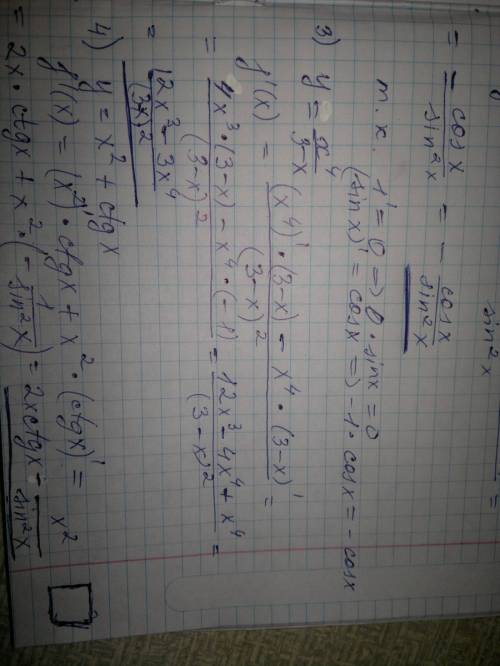 sin²x
= -cosx / sin²x = - cosx / sin²x
т.к. 1' = 0 => 0·sinx = 0
(sinx)' = cosx => -1·cosx = -cosx
3) y = x⁴ / 3-x
f'(x) = (x⁴)'·(3-x) - x⁴·(3-x)' / (3-x)² =
= 4x³·(3-x) - x⁴·(-1) / (3-x)² = 12x³ - 4x⁴ + x⁴ / (3-x)² =
= 12x³ - 3x⁴ / (3-x)²
4) y = x² + ctgx
f'(x) = (x²)'·ctgx + x²·(ctgx)' =
= 2x·ctgx + x²·(- 1 / sin²x) = 2xctgx - x² / sin²x